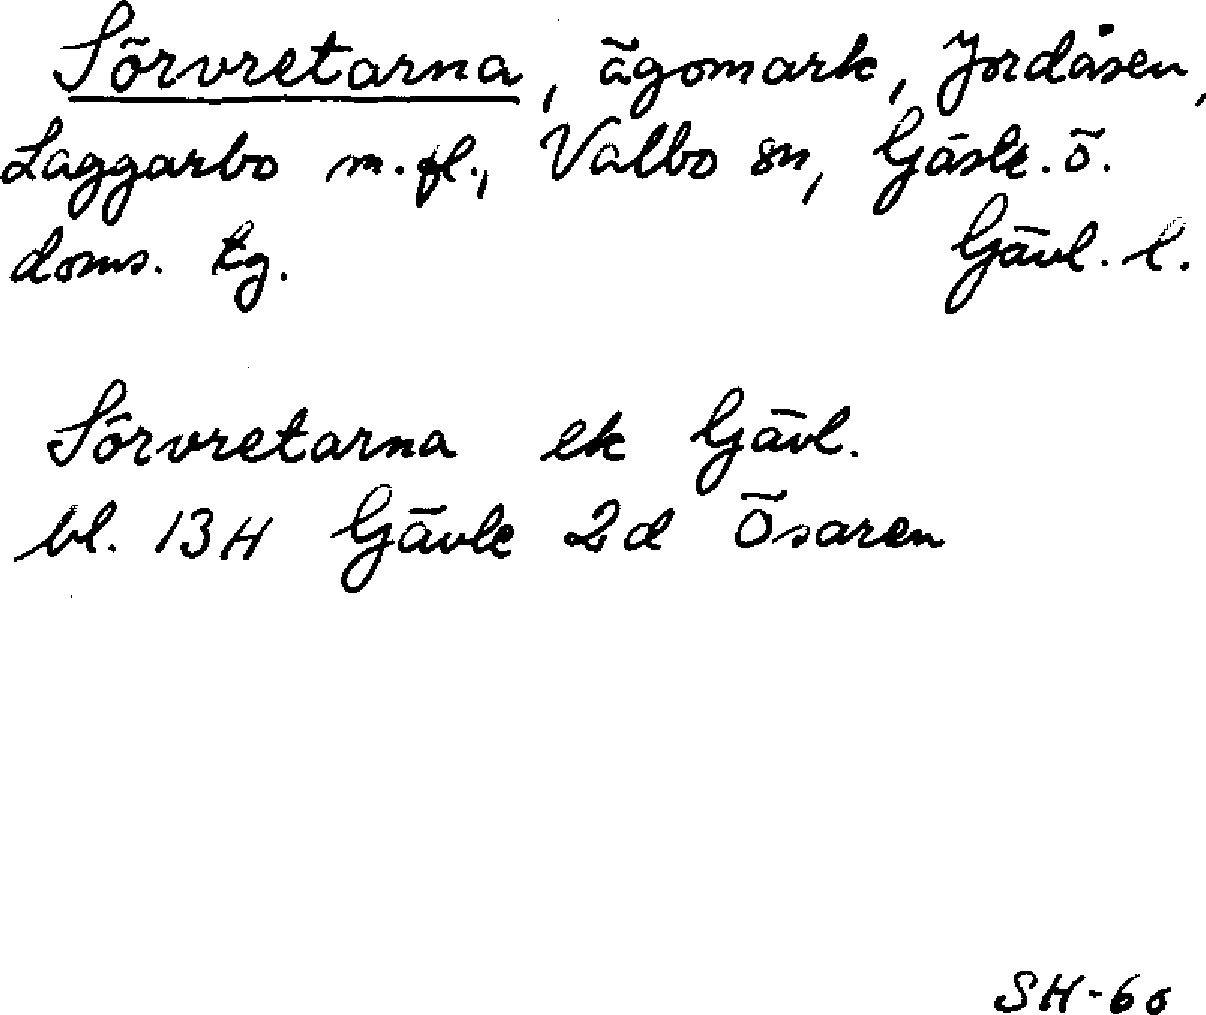 Sörvretarna, ägomark, Jordåsen,
Laggarbo m.fl., Valbo sn, Gästr. ö.
doms. tg. Gävl. l.
Sörvretarna ek Gävl.
bl. 13H Gävle 2d Ösaren
SH-60